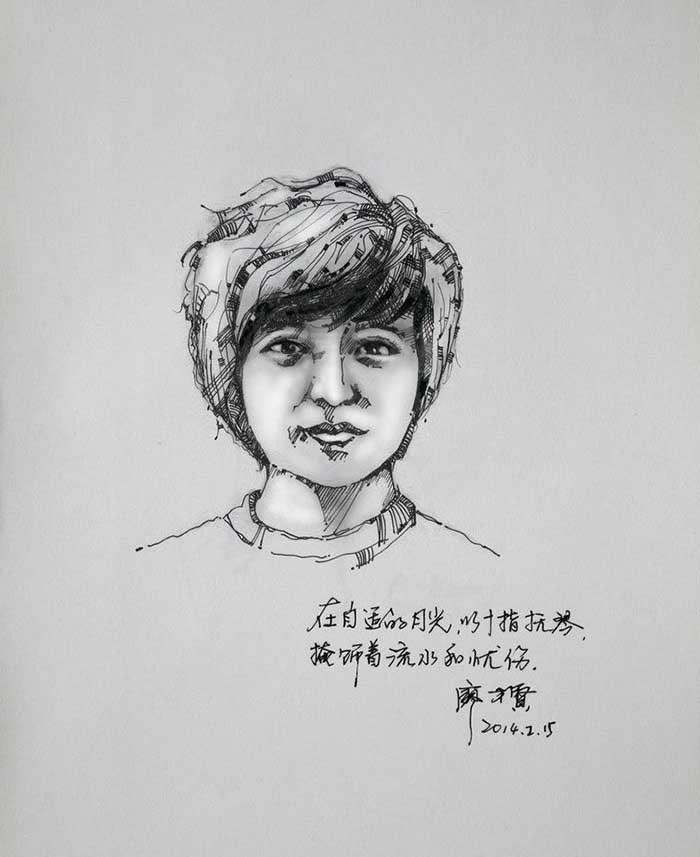 在自适的月光,以十指抚琴,
掩饰着流水和忧伤.
廖才贤
2014.2.15